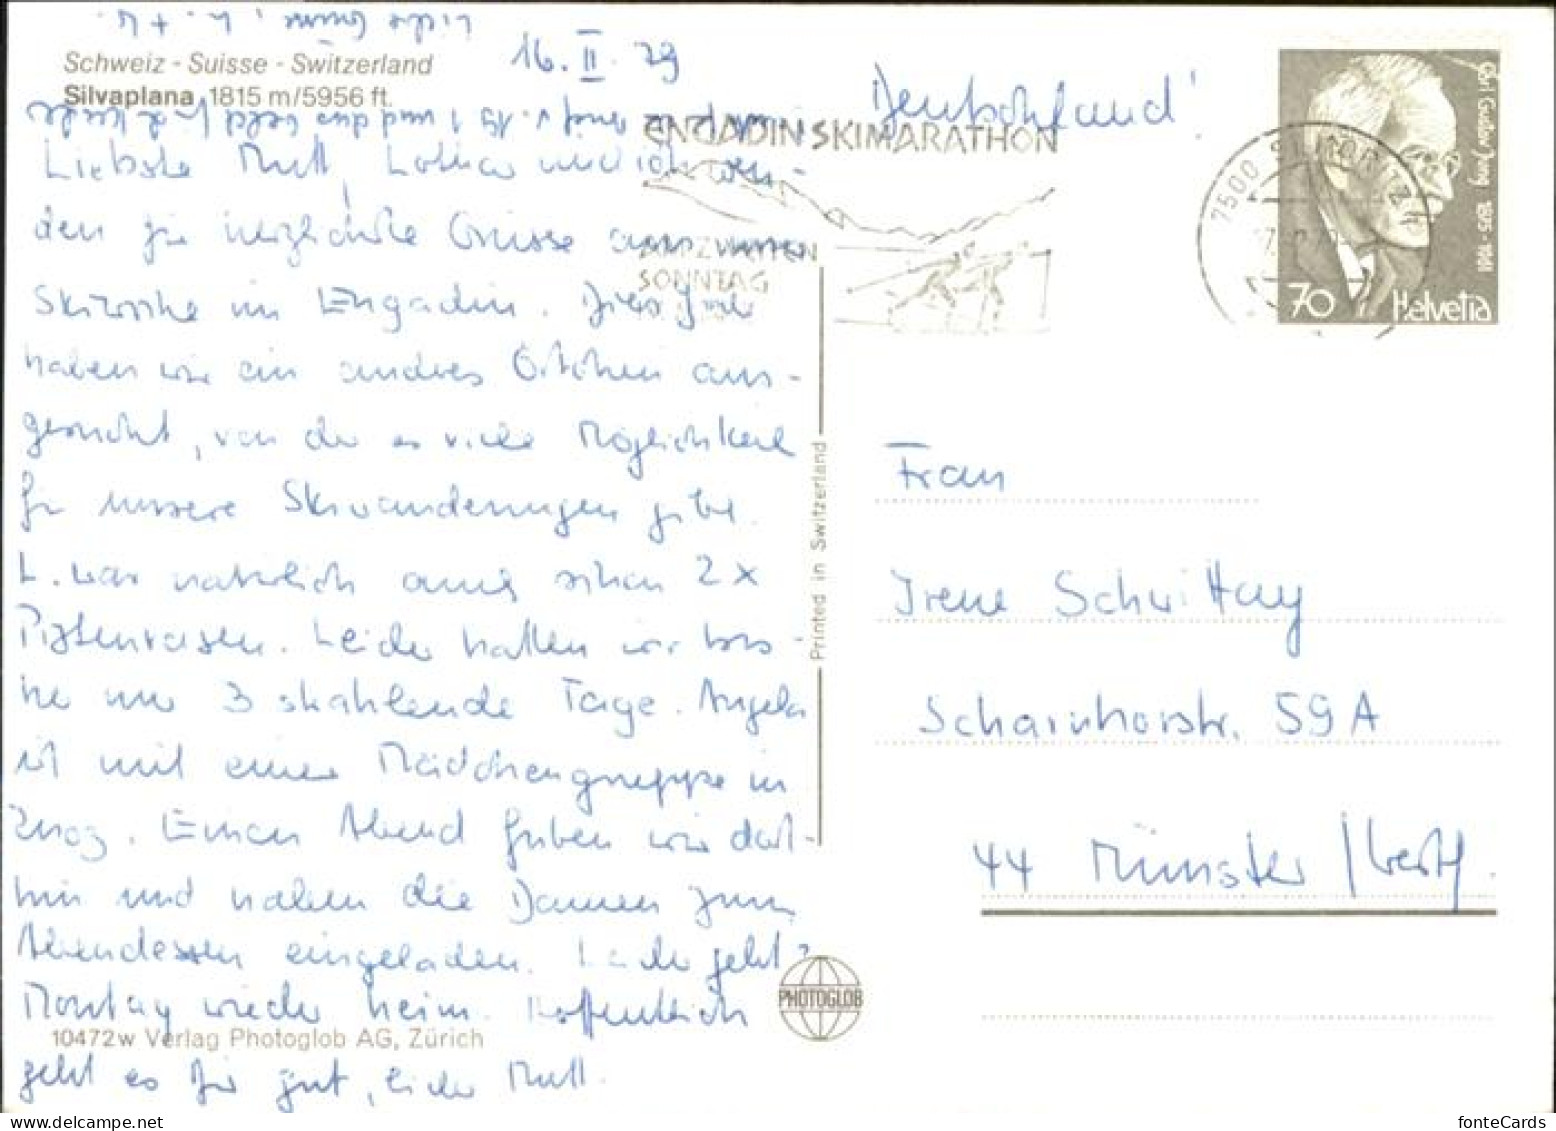 Schweiz - Suisse - Switzerland
Silvaplana 1815 m/5956 ft.
16. II. 79
Liebste Mutt, Lothar und ich wen-
den Dir herzlichste Grüsse aus unserer
Skiwoche im Engadin. Dies Jahr
haben wir ein anderes Örtchen aus-
gesucht, von da es viele Möglichkeit
für unsere Skiwanderungen gibt.
L. war natürlich auch schon 2 x
Pistenrasen. Leider hatten wir bis-
her nur 3 strahlende Tage. Angela
ist mit einer Mädchengruppe in
Zuoz. Einen Abend fuhren wir dort-
hin und haben die Damen zum
Abendessen eingeladen. Leider geht's
Montag wieder heim. Hoffentlich
geht es Dir gut, liebe Mutt.
und das Geld f. d. Kinder
Liebe Grüsse, L. + U.
10472w Verlag Photoglob AG, Zürich
Printed in Switzerland
PHOTOGLOB
Deutschland!
ENGADIN SKIMARATHON
AM ZWEITEN
SONNTAG
7500 ST. MORITZ
Carl Gustav Jung 1875-1961
70 Helvetia
Frau
Irene Schwittay
Scharnhorstr. 59 A
44 Münster / Westf.
fonteCards